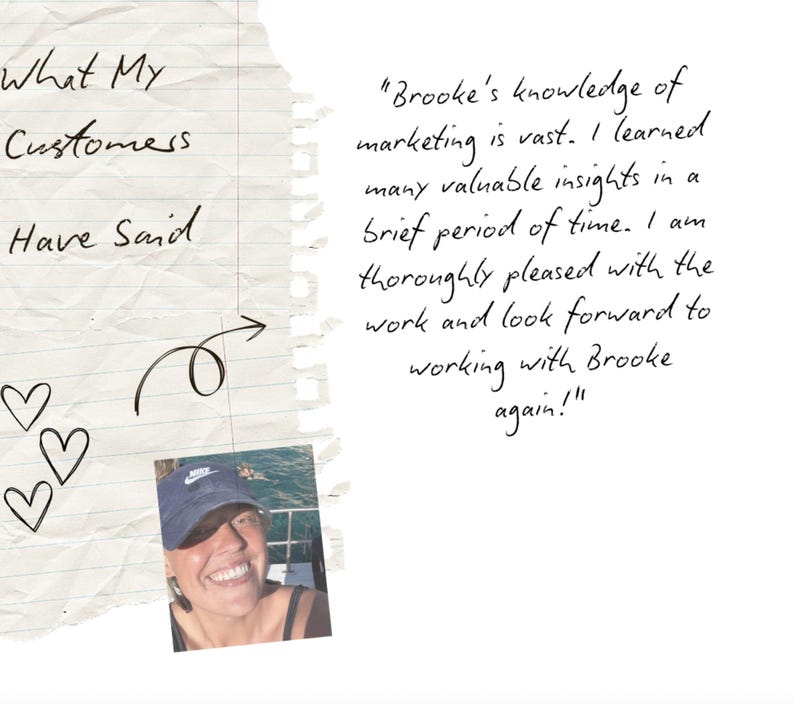 What My
Customers
Have Said
"Brooke's knowledge of
marketing is vast. I learned
many valuable insights in a
brief period of time. I am
thoroughly pleased with the
work and look forward to
working with Brooke
again!"
NIKE